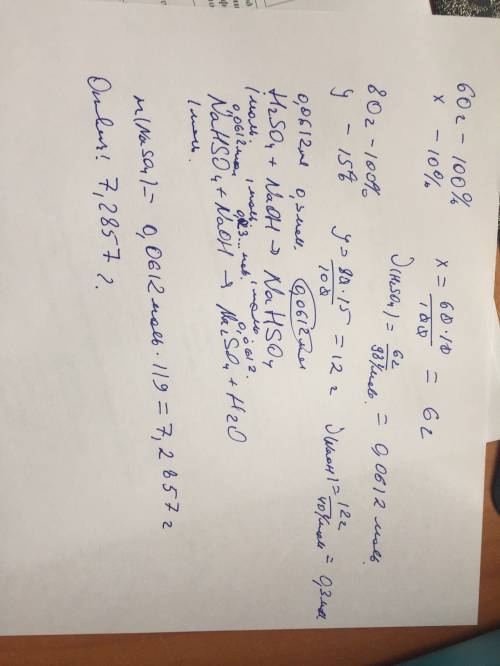 60г – 100%
x – 10%
x = 60·10/100 = 6г
ν(H₂SO₄) = 6г/98г/моль = 0,0612 моль.
80г – 100%
y – 15%
y = 80·15/100 = 12г
ν(NaOH) = 12г/40г/моль = 0,3моль
0,0612м 0,3моль. 0,0612м
H₂SO₄ + NaOH → NaHSO₄
1моль. 1моль. 1моль
0,0612моль 0,23... изб. 0,0612.
NaHSO₄ + NaOH → Na₂SO₄ + H₂O
1моль.
m(NaSO₄) = 0,0612моль · 119 = 7,2857г
Ответ: 7,2857г.